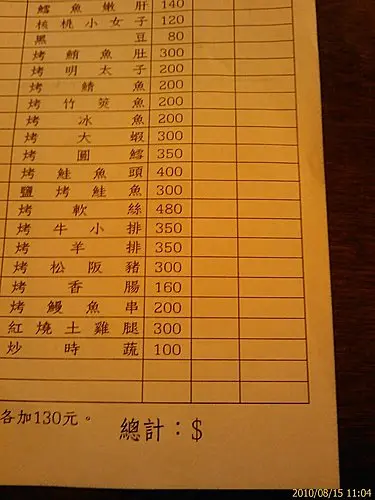 鱈魚嫩肝 140
核桃小女子 120
黑豆 80
烤鮪魚肚 300
烤明太子 200
烤鯖魚 200
烤竹筴魚 200
烤冰魚 200
烤大蝦 300
烤圓鱈 350
烤鮭魚頭 400
鹽烤鮭魚 300
烤軟絲 480
烤牛小排 350
烤羊排 350
烤松阪豬 300
烤香腸 160
烤鰻魚串 200
紅燒土雞腿 300
炒時蔬 100
各加130元。
總計：$
2010/08/15 11:04